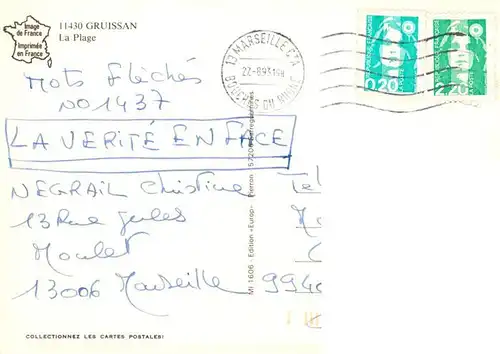 Image
de France
Imprimée
en France
11430 GRUISSAN
La Plage
13 MARSEILLE
22-8-93
BOUCHES DU RHONE
0,20
2,20
Mots fléchés
NO 1437
LA VERITÉ EN FACE
NEGRAIL Christine
13 Rue Jules
Moulet
13006 Marseille
MI 1606 - Edition «Europ» Pierron - 57206
COLLECTIONNEZ LES CARTES POSTALES!